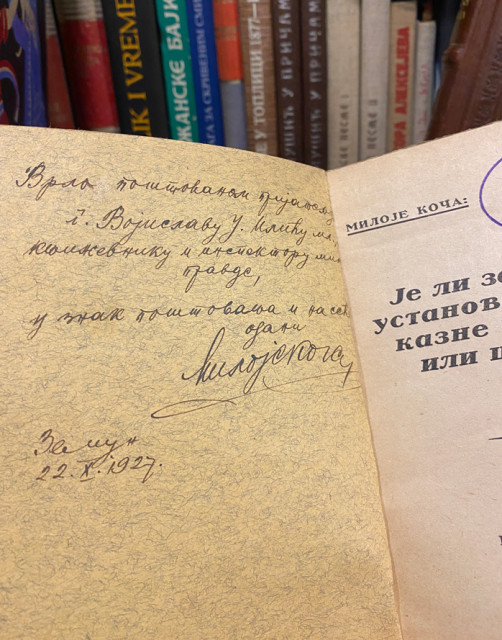 K I VREME
ЖАНСКЕ БАЈК
ГА ЗА СКРИВЕНИМ СМИ
Е У ТОПЛИЦИ 1877—1
УНИЋ У ПРИЧАМ
УНИЋ У ПРИЧАМ
ПЕСМЕ I
ПЕСМЕ II
ОРА АЛЕКСИЈЕ
Врло поштованом пријатељу
г. Војиславу Ј. Илићу мл.,
књижевнику и инспектору мин.
правде,
у знак поштовања и на сећ
одани
Милоје Коча
Земун
22. X. 1927.
МИЛОЈЕ КОЧА:
Је ли з
установ
казне
или